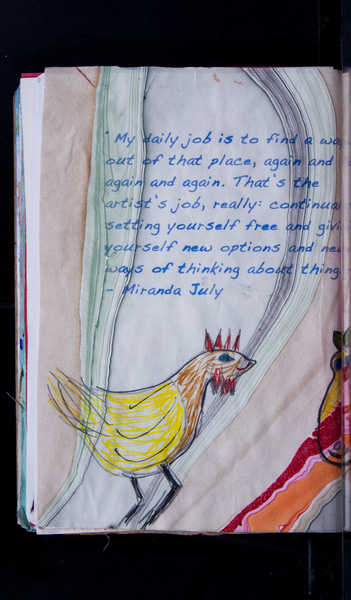 "My daily job is to find a wa
out of that place, again and
again and again. That's the
artist's job, really: continua
setting yourself free and givi
yourself new options and ne
ways of thinking about thing
- Miranda July